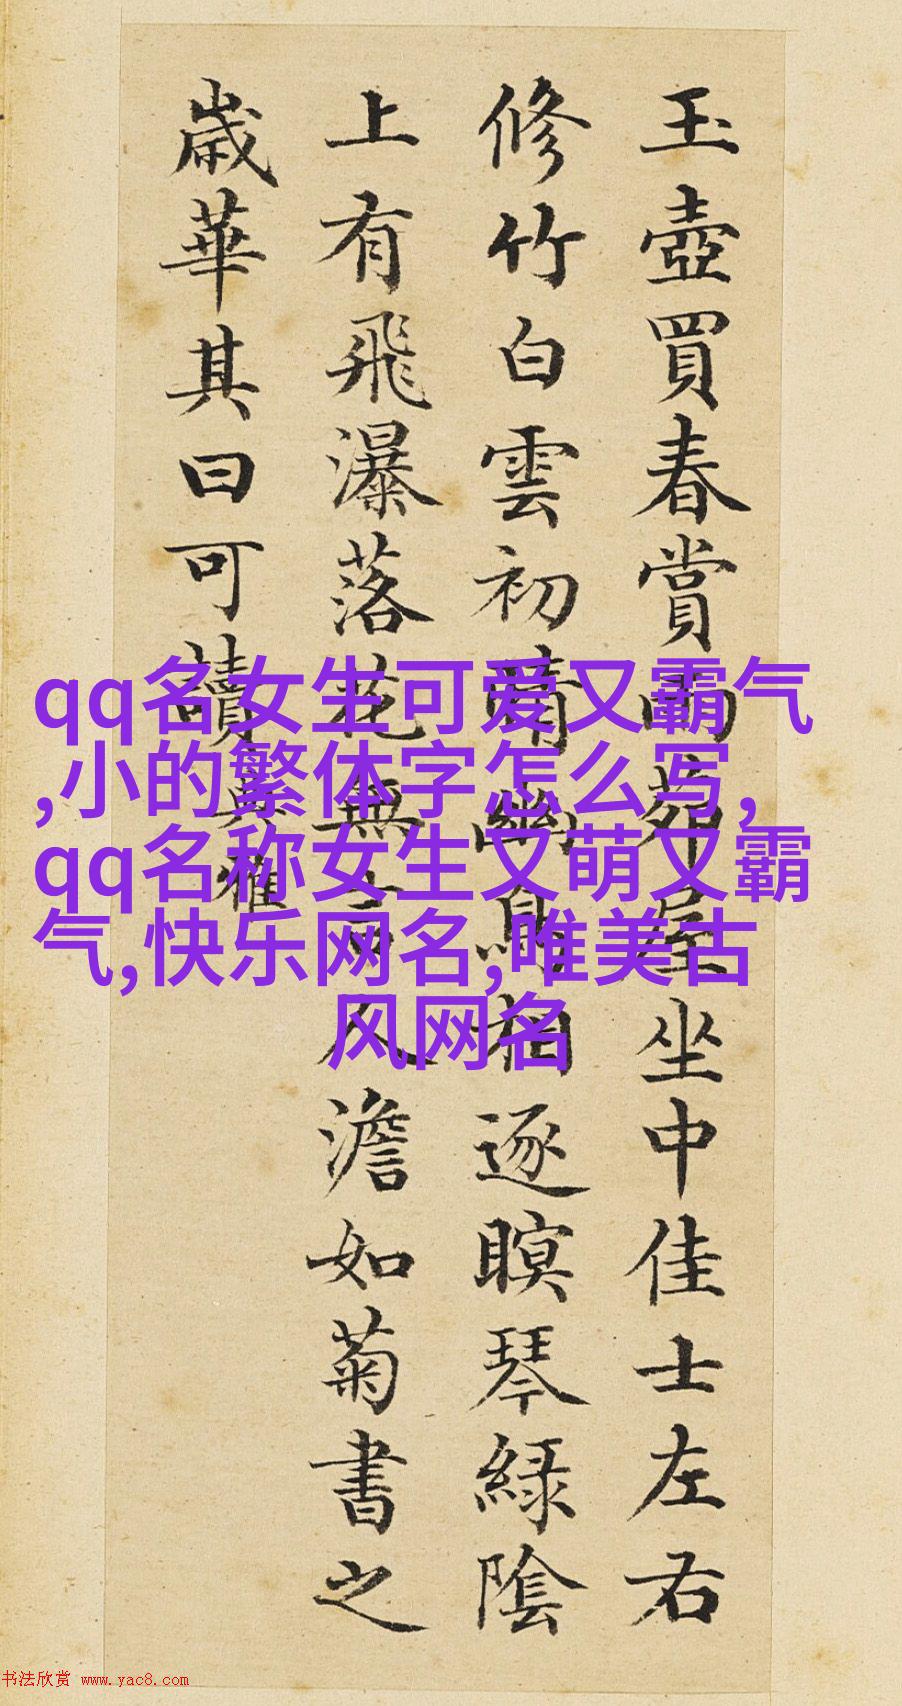 玉壺買春賞雨茆屋坐中佳士左右
修竹白雲初晴幽鳥相逐瞑琴綠陰
上有飛瀑落花無言人澹如菊書之
歲華其曰可讀典雅
qq名女生可爱又霸气
,小的繁体字怎么写,
qq名称女生又萌又霸
气,快乐网名,唯美古
风网名
书法欣赏 www.yac8.com